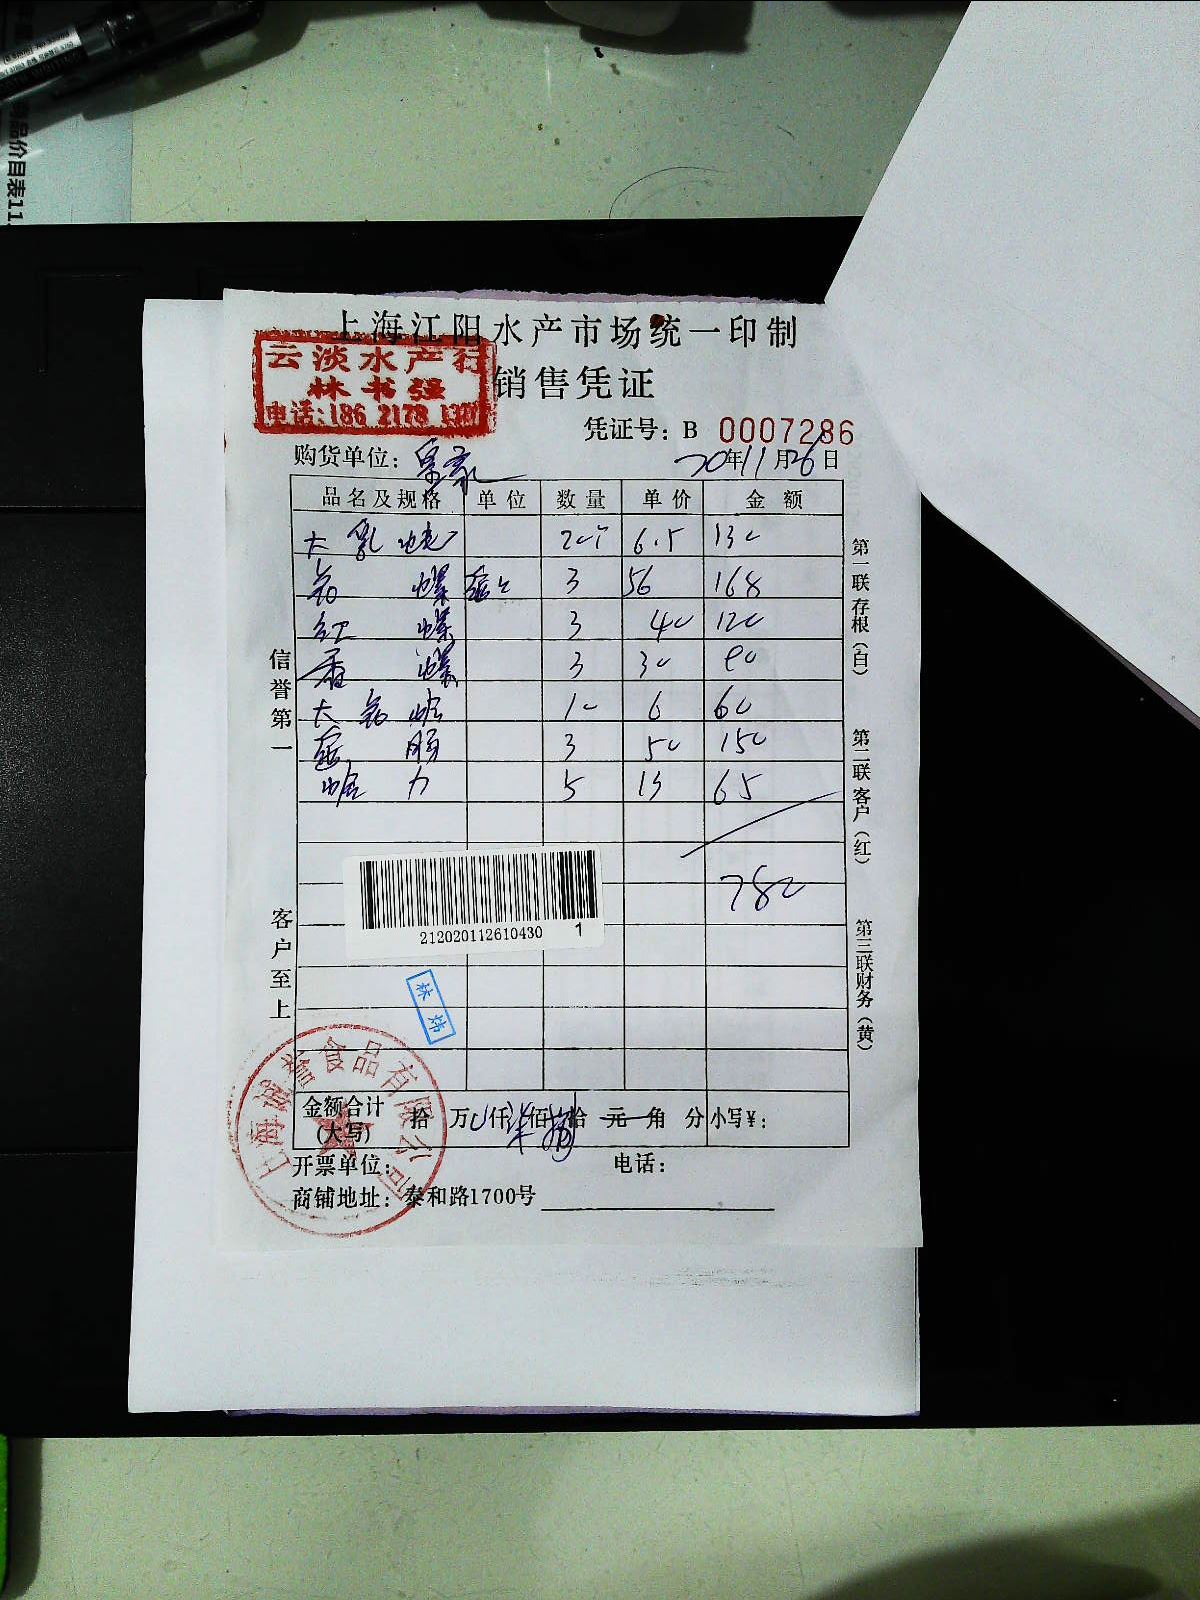 品价目表11
上海江阳水产市场统一印制
云淡水产行
林书强
电话:186 2178
销售凭证
凭证号: B 0007286
购货单位: 皇家
20年11月26日
品名及规格 单位 数量 单价 金额
大 乳 20个 6.5 130
螺 3 56 168
红 螺 3 40 120
香 螺 3 30 90
大 蛤 10 6 60
肠 3 50 150
蛤 力 5 13 65
782
212020112610430 1
林炜
信誉第一
客户至上
第一联存根(白)
第二联客户(红)
第三联财务(黄)
上海诚誉食品有限公司
金额合计
(大写)
拾 万 仟 佰 拾 元 角 分 小写¥:
开票单位: 电话:
商铺地址: 泰和路1700号